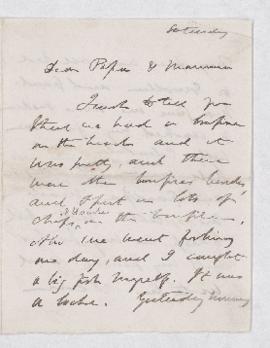 Saturday
Dear Papa & Mamma
I want to tell you
that we had a bonfire
on the beach and it
was pretty, and there
were other bonfires besides
and I put on lots of
chips, on the bonfire.
we went fishing
one day, and I caught
a big fish myself. It was
a Yesterday